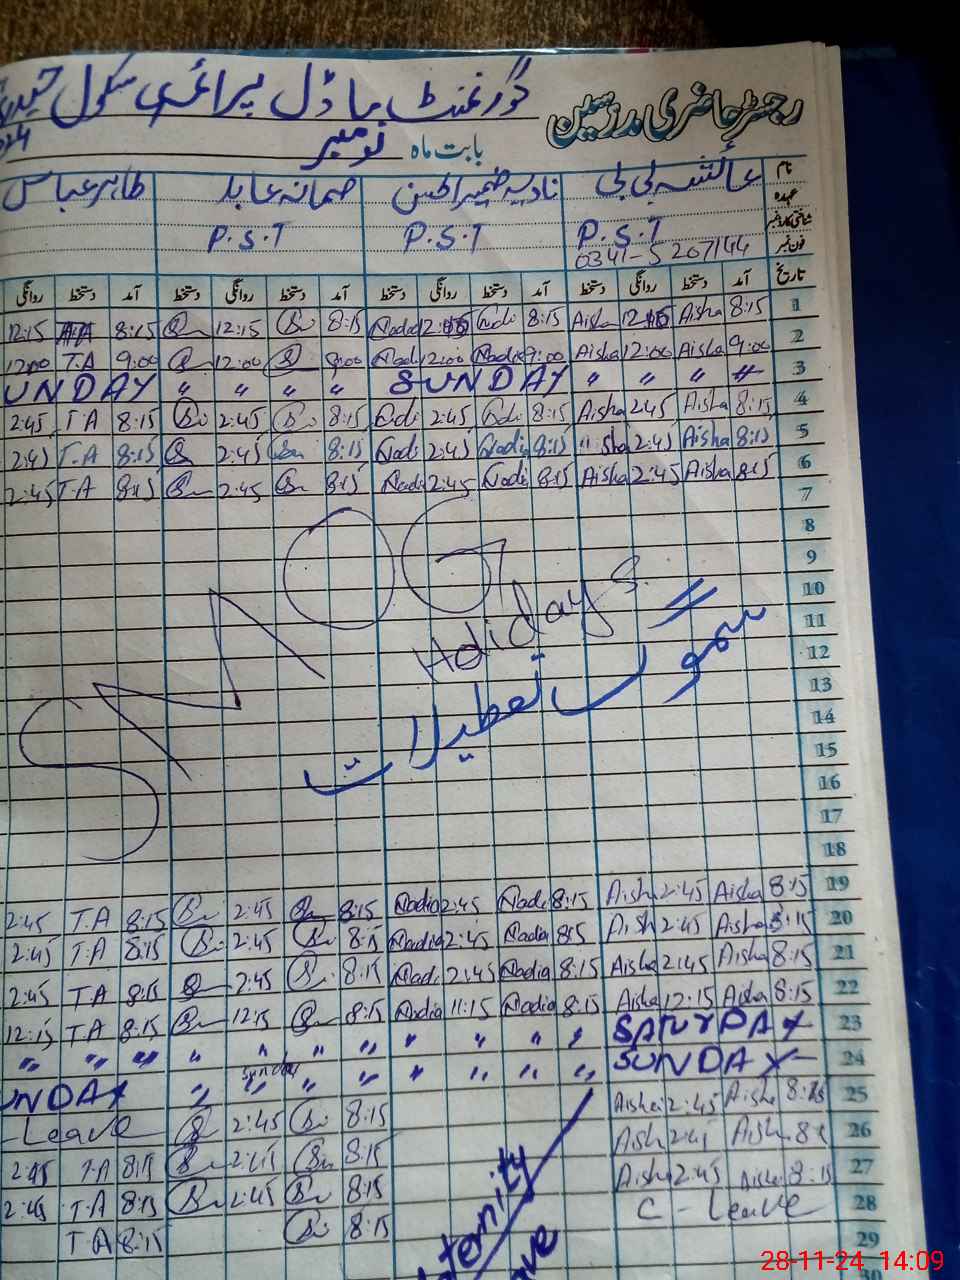 رجسٹر حاضری مدرسین گورنمنٹ ماڈل پرائمری سکول
بابت ماہ نومبر
نام عائشہ بی بی نادیہ ضمیر الحسن صمانہ عابد طاہر عباس
عہدہ
شناختی کارڈ نمبر P.S.T P.S.T P.S.T
فون نمبر 0341-5207144
تاریخ آمد دستخط روانگی دستخط آمد دستخط روانگی دستخط آمد دستخط روانگی دستخط آمد دستخط روانگی
1 8:15 Aisha 12:15 Aisha 8:15 Nadi 12:15 Nadia 8:15 12:15 8:15 T.A 12:15
2 9:00 Aisha 12:00 Aisha 9:00 Nadia 12:00 Nadi 9:00 12:00 9:00 T.A 12:00
3 " " " SUNDAY " " " " UNDAY
4 8:15 Aisha 2:45 Aisha 8:15 Nadi 2:45 Nadi 8:15 2:45 8:15 T A 2:45
5 8:15 Aisha 2:45 Aisha 8:15 Nadia 2:45 Nadi 8:15 2:45 8:15 T.A 2:45
6 8:15 Aisha 2:45 Aisha 8:15 Nadi 2:45 Nadi 8:15 2:45 8:15 T.A 2:45
7
8
9
SMOG
10
Holidays
11
سموگ تعطیلات
12
13
14
15
16
17
18
19 8:15 Aisha 2:45 Aisha 8:15 Nadi 2:45 Nadia 8:15 2:45 8:15 T.A 2:45
20 8:15 Aisha 2:45 Aish 8:15 Nadia 2:45 Nadia 8:15 2:45 8:15 T.A 2:45
21 8:15 Aisha 2:45 Aisha 8:15 Nadia 2:45 Nadi 8:15 2:45 8:15 TA 2:45
22 8:15 Aisha 12:15 Aisha 8:15 Nadia 11:15 Nadia 8:15 12:15 8:15 T.A 12:15
23 SATURDAY " " " " " " " " " " "
24 SUNDAY " " " " " " sunday " " UNDAY
25 8:15 Aisha 2:45 Aisha 8:15 2:45 -Leave
26 8:15 Aish 2:45 Aish 8:15 2:45 8:15 T.A 2:45
27 8:15 Aisha 2:45 Aisha 8:15 2:45 8:15 T.A 2:45
28 C-Leave 8:15 T A 8:15
29
30
28-11-24 14:09